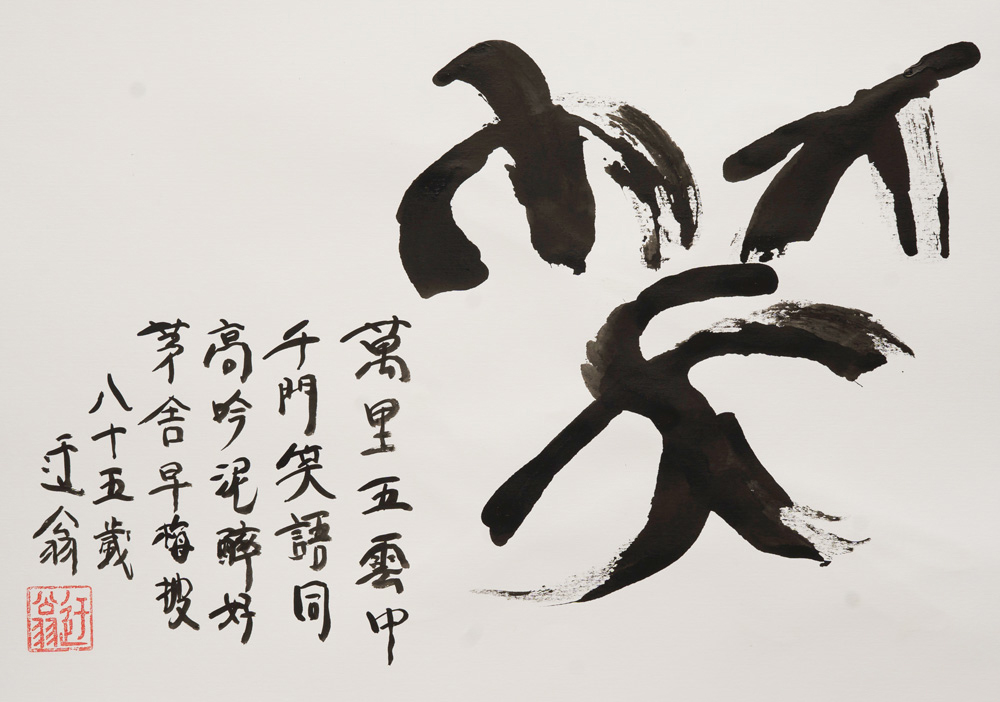 笑
萬里五雲中
千門笑語同
高吟泥醉好
茅舍早梅
八十五歲
迂翁
迂翁